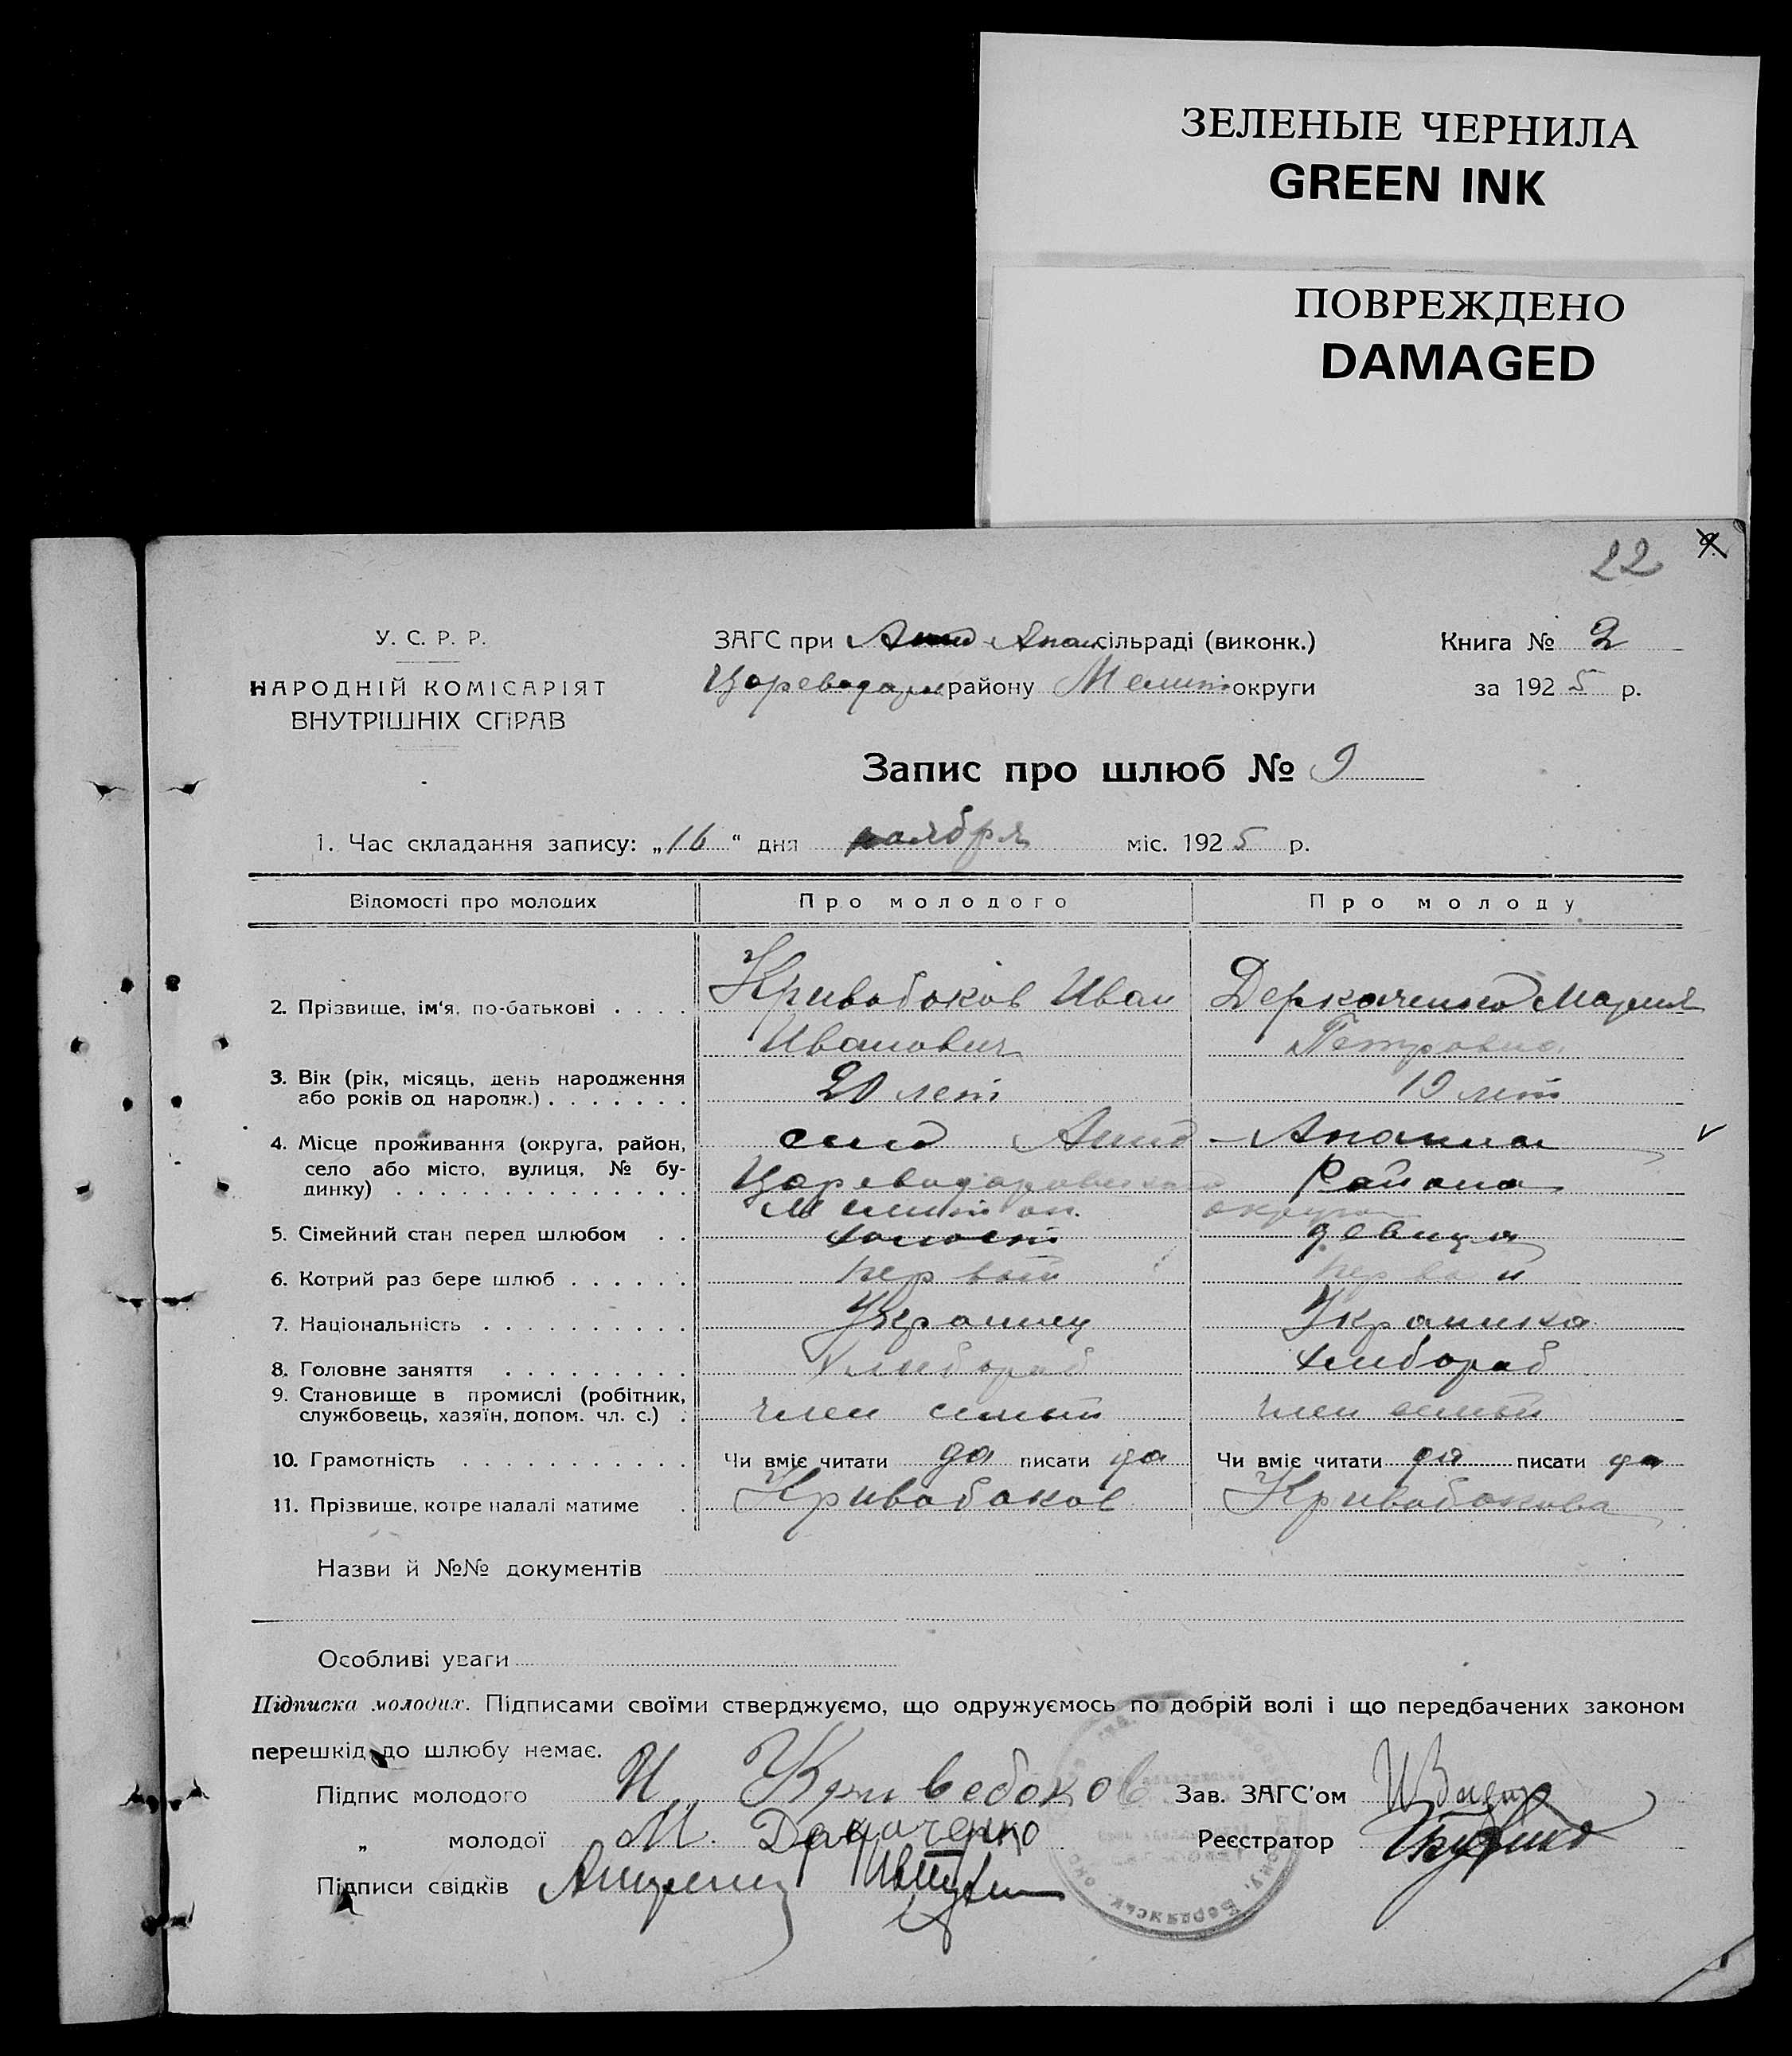 ЗЕЛЕНЫЕ ЧЕРНИЛА
GREEN INK
ПОВРЕЖДЕНО
DAMAGED
22
У. С. Р. Р.
НАРОДНІЙ КОМІСАРІЯТ
ВНУТРІШНІХ СПРАВ
ЗАГС при Анан сільраді (виконк.)
Цареводар району Мелит округи
Книга № 2
за 1925 р.
Запис про шлюб № 9
1. Час складання запису: „16“ дня ноября міс. 1925 р.
Відомості про молодих Про молодого Про молоду
2. Прізвище, ім'я, по-батькові . . . . Кривобоков Иван Деркаченко Мария
Иванович Петровна
3. Вік (рік, місяць, день народження
або років од народж.) . . . . . . . 20 лет 19 лет
4. Місце проживання (округа, район, село Анно - Анания
село або місто, вулиця, № бу-
динку) . . . . . . . . . . . . . . Цареводаровского Района
Мелитоп. округа
5. Сімейний стан перед шлюбом . . холост девица
6. Котрий раз бере шлюб . . . . . . первый первый
7. Національність . . . . . . . . . . Украинец Украинка
8. Головне заняття . . . . . . . . . хлибороб хлибороб
9. Становище в промислі (робітник,
службовець, хазяїн, допом. чл. с.) . член семьи член семьи
10. Грамотність . . . . . . . . . . . Чи вміє читати да писати да Чи вміє читати да писати да
11. Прізвище, котре надалі матиме . Кривобоков Кривобокова
Назви й №№ документів
Особливі уваги
Підписка молодих. Підписами своїми стверджуємо, що одружуємось по добрій волі і що передбачених законом
перешкід до шлюбу немає.
Підпис молодого И. Кривобоков Зав. ЗАГС'ом
„ молодої М. Деркаченко Реєстратор
Підписи свідків
Бердянськ